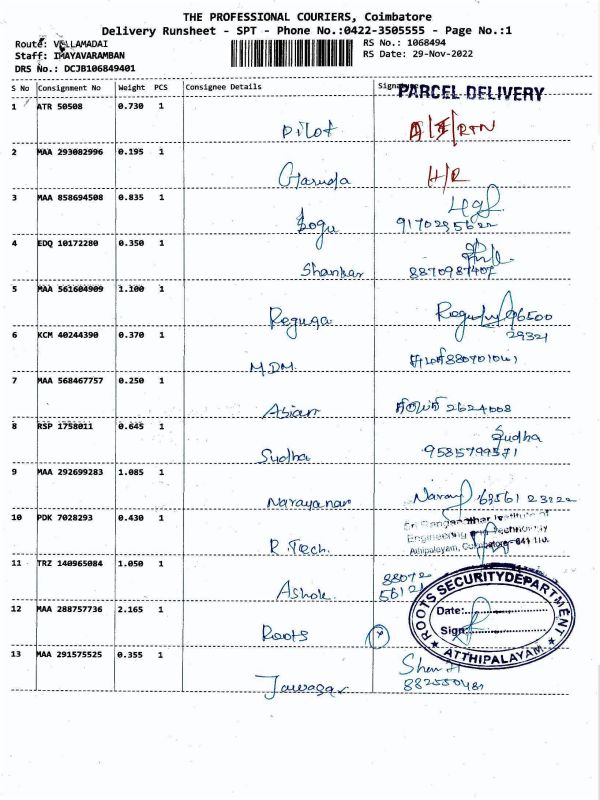 THE PROFESSIONAL COURIERS, Coimbatore
Delivery Runsheet - SPT - Phone No.:0422-3505555 - Page No.:1
Route: VELLAMADAI
RS No.: 1068494
Staff: IMAYAVARAMBAN
RS Date: 29-Nov-2022
DRS No.: DCJB106849401
S No Consignment No Weight PCS Consignee Details Signature
PARCEL DELIVERY
1 ATR 50508 0.730 1
Pilot
2 MAA 293082996 0.195 1
Garuda H/R
3 MAA 858694508 0.835 1
4 EDQ 10172280 0.350 1
Shankar 8870987407
5 MAA 561604909 1.100 1
96500
29321
6 KCM 40244390 0.370 1
MDM
7 MAA 568467757 0.250 1
2624008
8 RSP 1758011 0.645 1
Sudha
Sudha
9585799571
9 MAA 292699283 1.085 1
Narayanan
10 PDK 7028293 0.430 1
Engineering and Technology
R.Tech
11 TRZ 140965084 1.050 1
88072
56121
Ashok
12 MAA 288757736 2.165 1
ROOTS SECURITY DEPARTMENT
Date:
Sign:
ATTHIPALAYAM
Roots
13 MAA 291575525 0.355 1